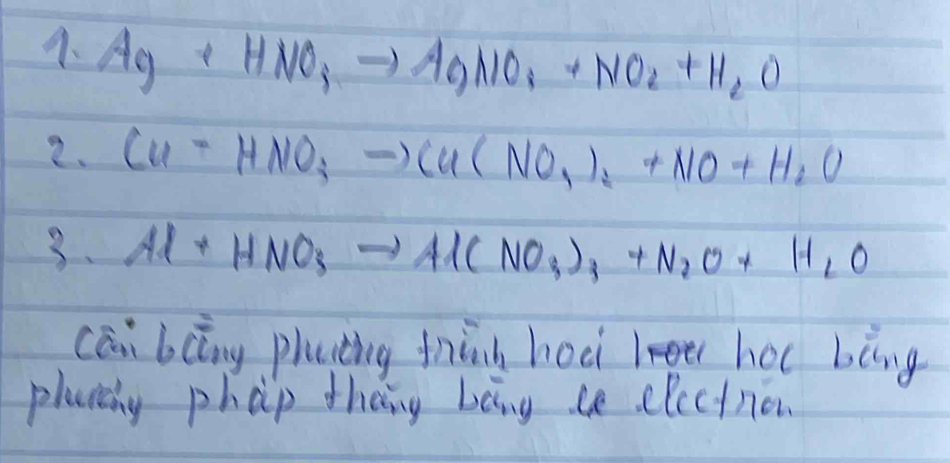 1. Ag + HNO₃ → AgNO₃ + NO₂ + H₂O
2. Cu - HNO₃ → Cu(NO₃)₂ + NO + H₂O
3. Al + HNO₃ → Al(NO₃)₃ + N₂O + H₂O
Cân bằng phương trình hoá học bằng
phương pháp thăng bằng electron